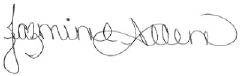 Jasmine Allen